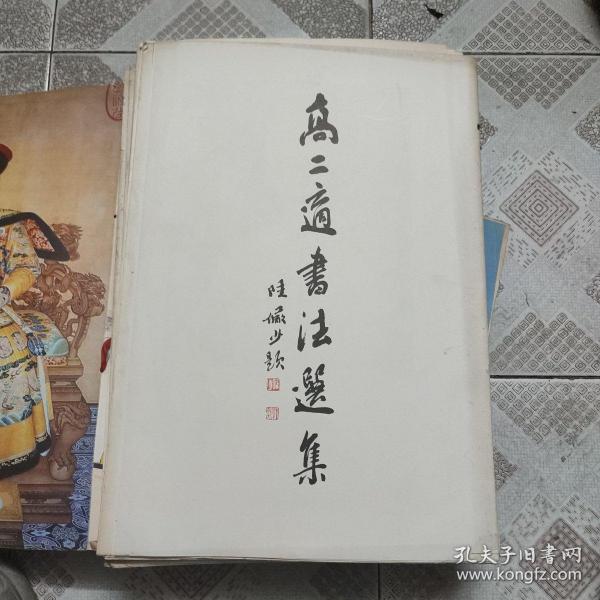 高二適書法選集
陸儼少題
孔夫子旧書网
www.kongfz.com